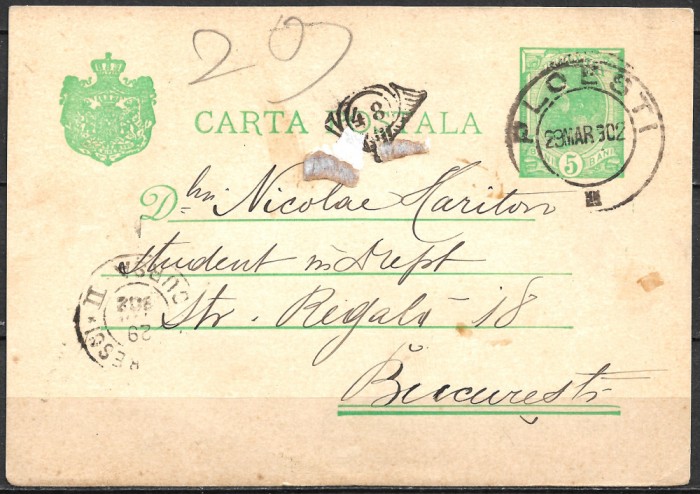 20
CARTA POSTALA
48
PLOESTI
29 MAR 902
5 BANI
Dlui Nicolae Hariton
student in Drept
Str. Regală 18
București
29
II